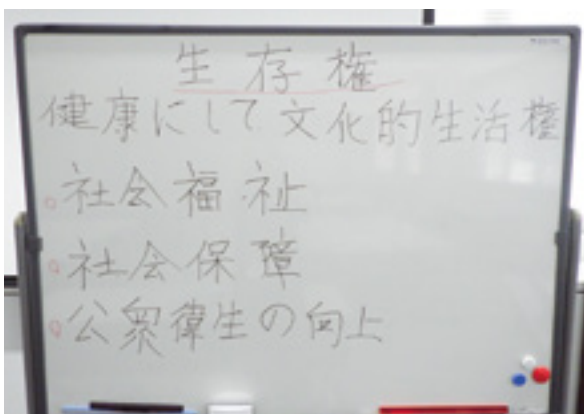 生存権
健康にして文化的生活権
社会福祉
社会保障
公衆衛生の向上